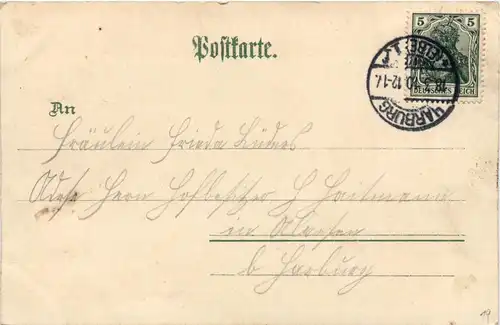 Postkarte.
5 5
DEUTSCHES REICH
HARBURG
(ELBE) 1
12-1
An
Fräulein Frieda Lüders
Adr. Herrn Hofbesitzer H Heitmann
in
b Harburg
19